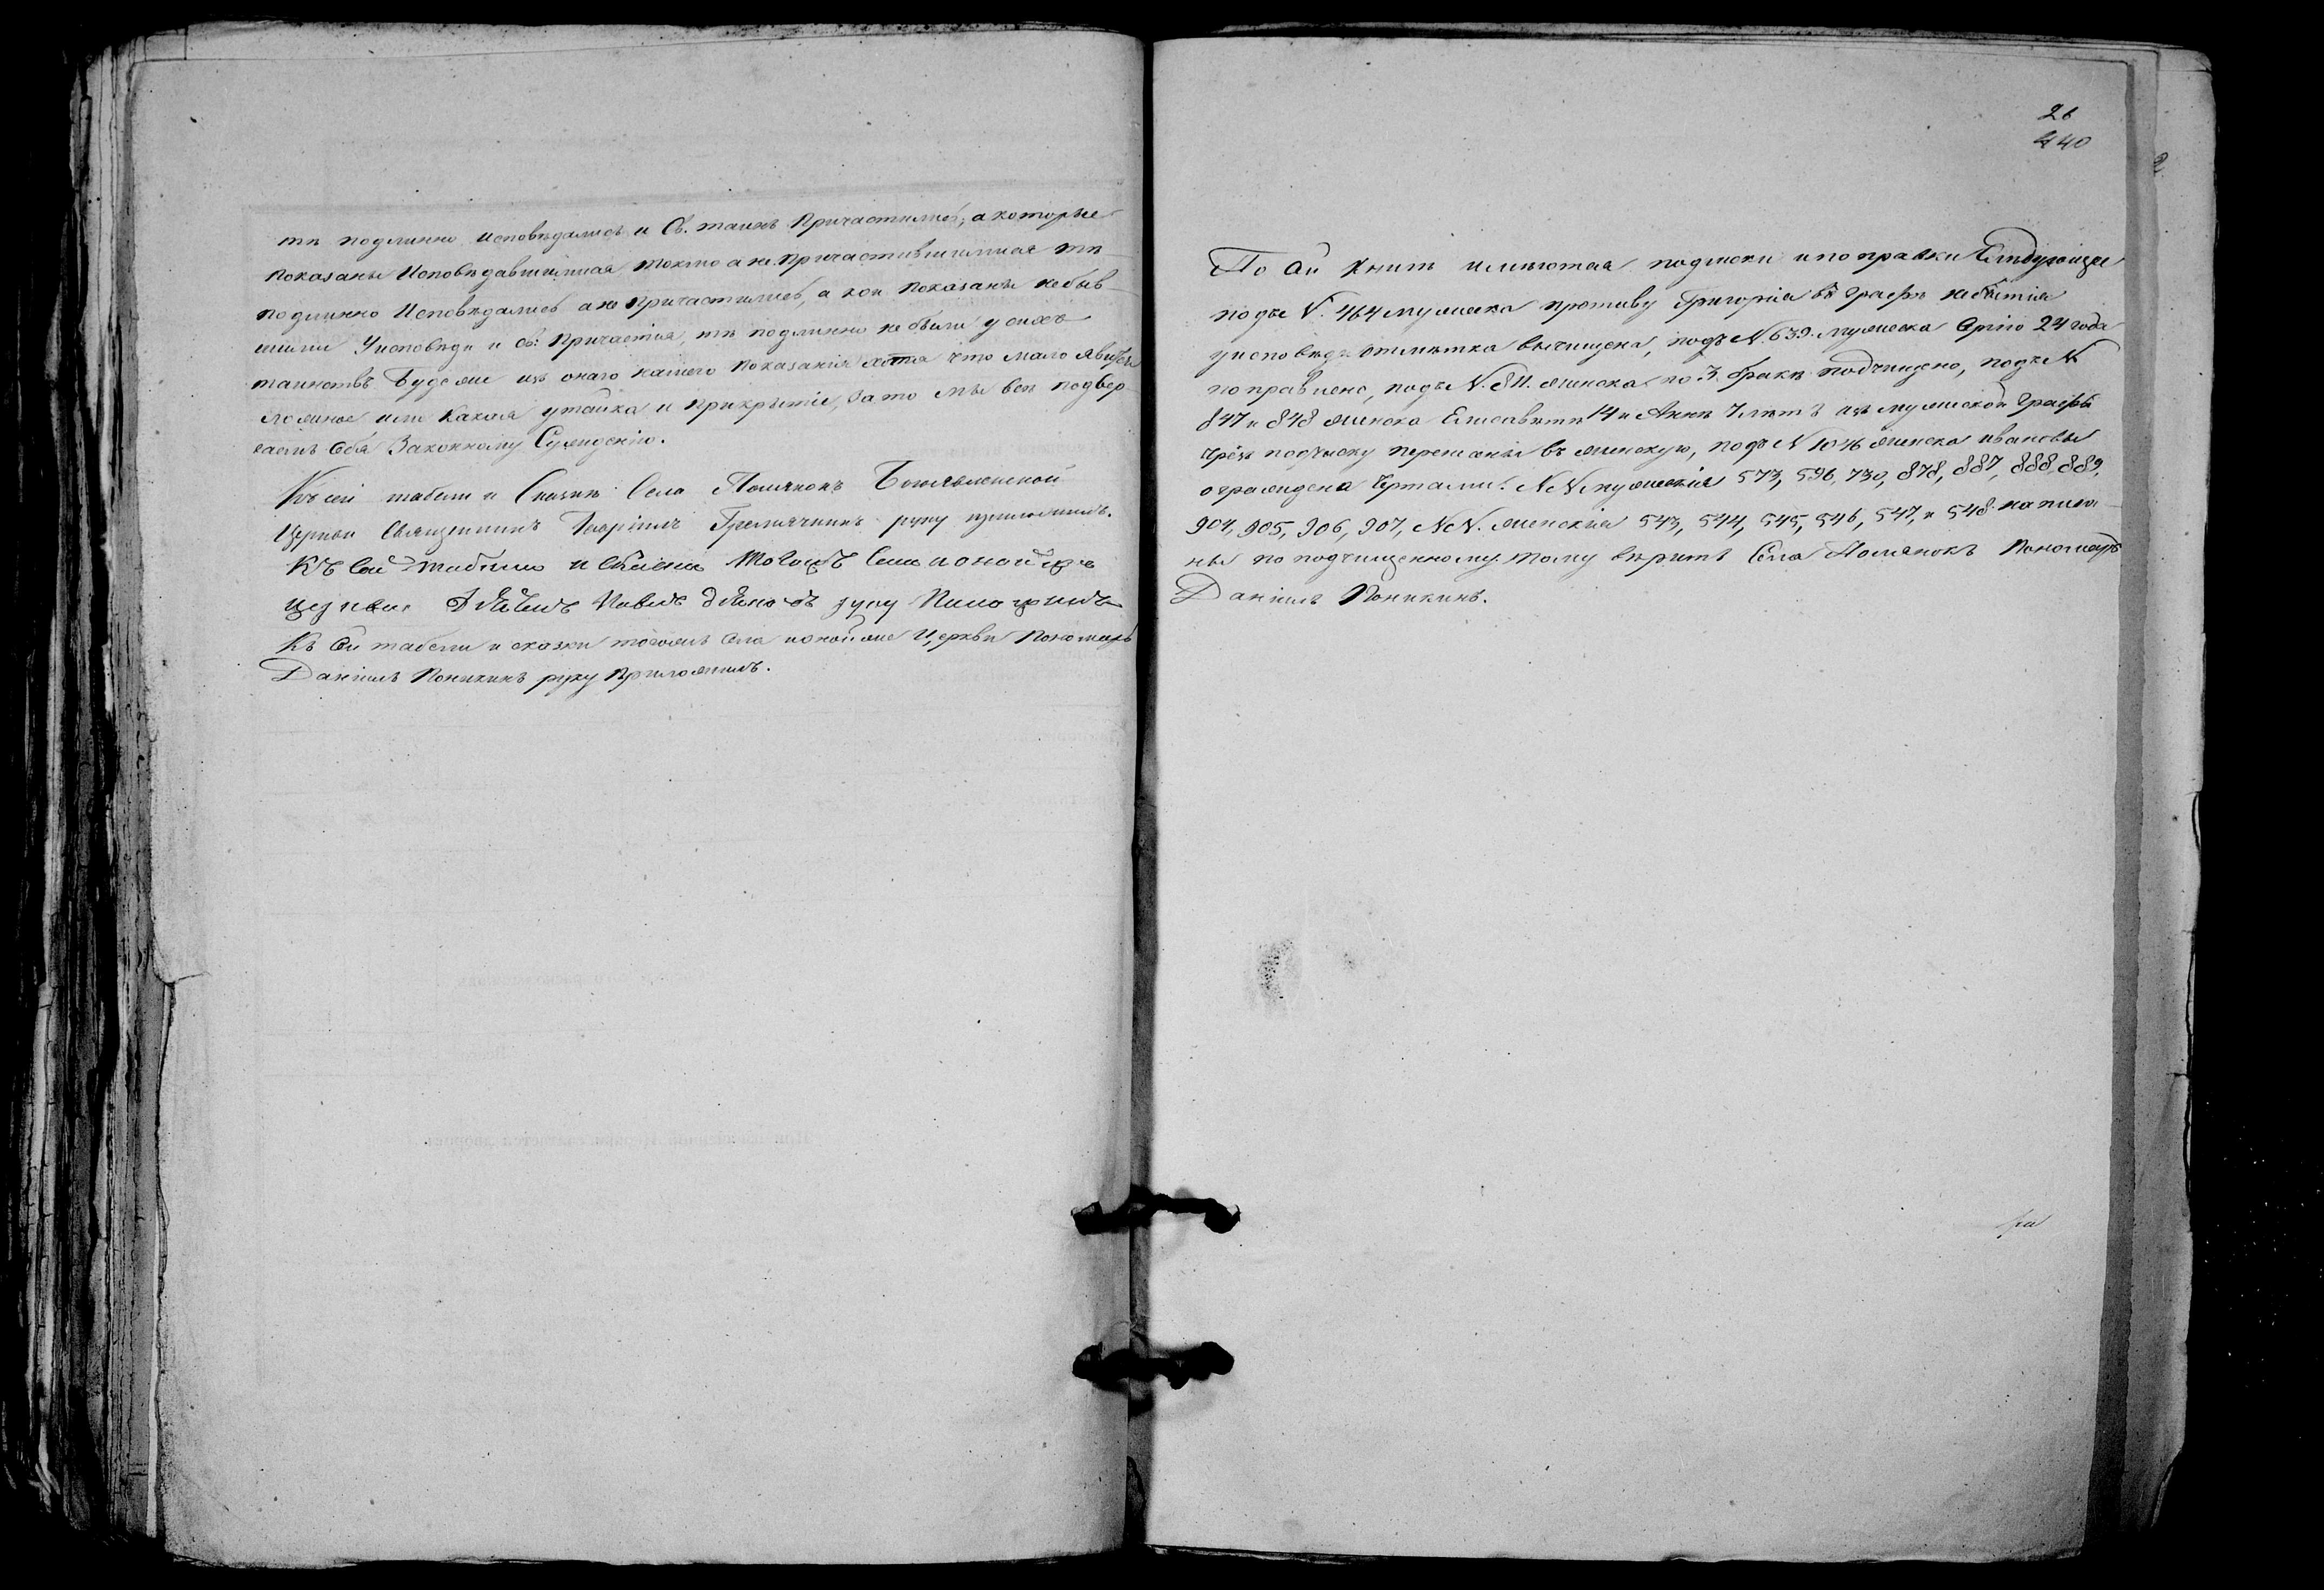 тѣ подлинно исповѣдались и Св. таинъ причастились; а которые
показаны исповѣдавшимися токмо а не причастившимися тѣ
подлинно исповѣдались а не причастились, а кои показаны небыв-
шими у исповѣди и св: причастія, тѣ подлинно не были у сихъ
таинствъ. Буде же изъ онаго нашего показанія хотя что мало явится
ложное или какая утайка и прикрытіе, за то мы всѣ подвер
гаемъ себя законному сужденію.
Къ сей табели и сказкѣ Села Полянокъ Богоявленской
Церкви Священникъ Гавріилъ Гремячкинъ руку приложилъ.
Къ сей табели и сказки тогожъ села и онойже
церкви Павелъ руку
Къ сей табели и сказки тогожъ села и онойже Церкви Пономарь
Даніилъ Поникинъ руку приложилъ.
26
440
По сей книгѣ имѣются подписки и поправки слѣдующіе
подъ N. 464 мужеска противу Григорія въ графѣ небытія
у исповѣди отмѣтка вычищена, подъ N. 639. мужеска 24 года
поправлено, подъ N. 811. женска по 3. бракѣ подчищено, подъ N
847 и 848 женска Елисаветѣ 14 и Аннѣ 7 лѣтъ изъ мужеской графы
чрезъ подписку перенаны въ женскую, подъ N 1046 женска Ивановы
ограждена чертами. NN мужескія 573, 596, 730, 878, 887, 888, 889,
904, 905, 906, 907, NN. женскія 543, 544, 545, 546, 547, и 548 написа-
ны по подчищенному. тому вѣрить Села Полянокъ Пономарь
Даніилъ Поникинъ.